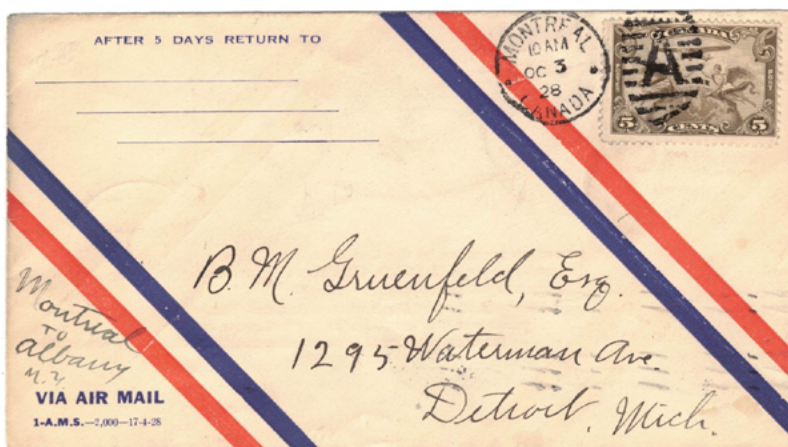 AFTER 5 DAYS RETURN TO
MONTREAL
10 AM
OC 3
28
CANADA
A
CANADA
5 CENTS 5
B. M. Gruenfeld, Esq.
1295 Waterman Ave.
Detroit, Mich.
Montreal
TO
Albany
N.Y.
VIA AIR MAIL
1-A.M.S.—2,000—17-4-28